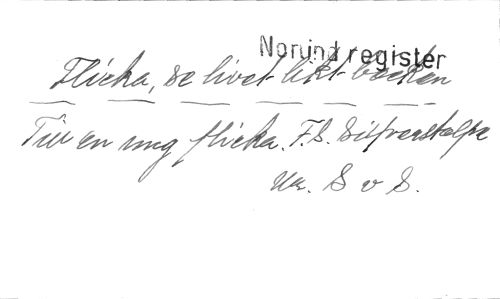 Norlind register
Flicka, se livet likt bäcken
Till en ung flicka. F.S. Silfverstolpe
Ur. S v S.